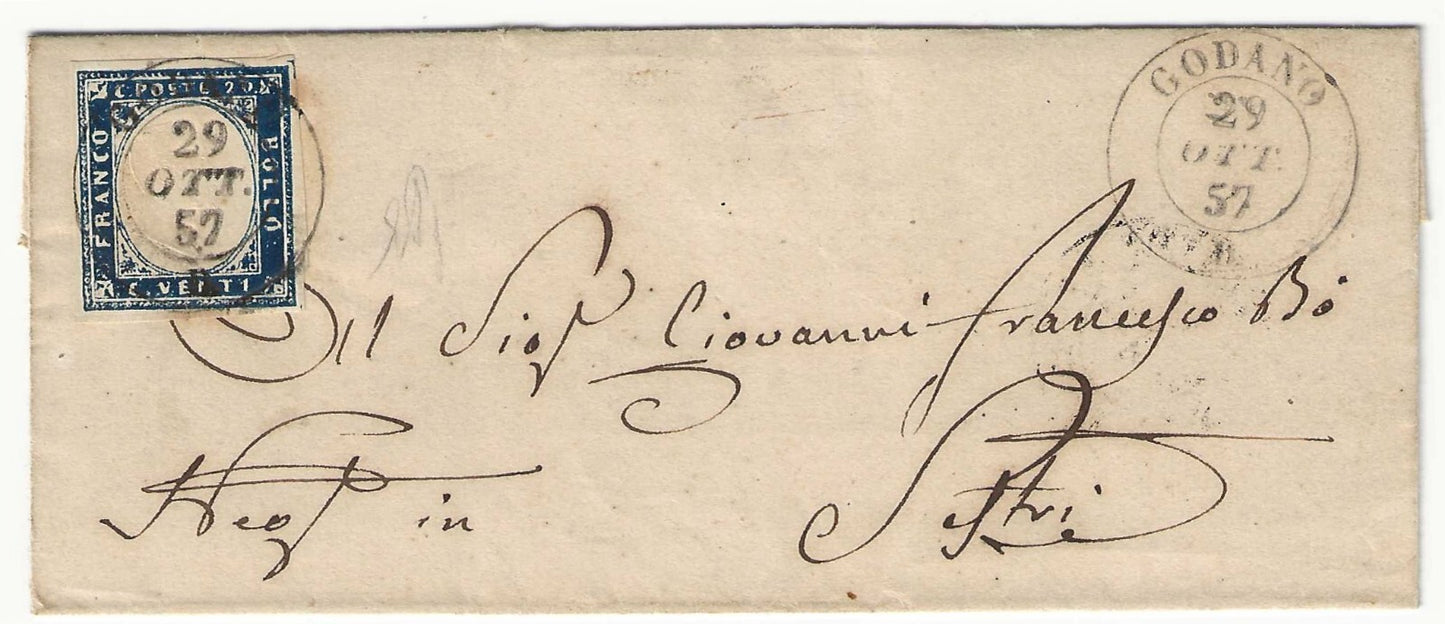 C. POSTE 20.
FRANCO
BOLLO
C. VENTI
29
OTT.
57
GODANO
29
OTT.
57
Il Sig.r Giovanni Francesco Bò
Neg.te in Sestri